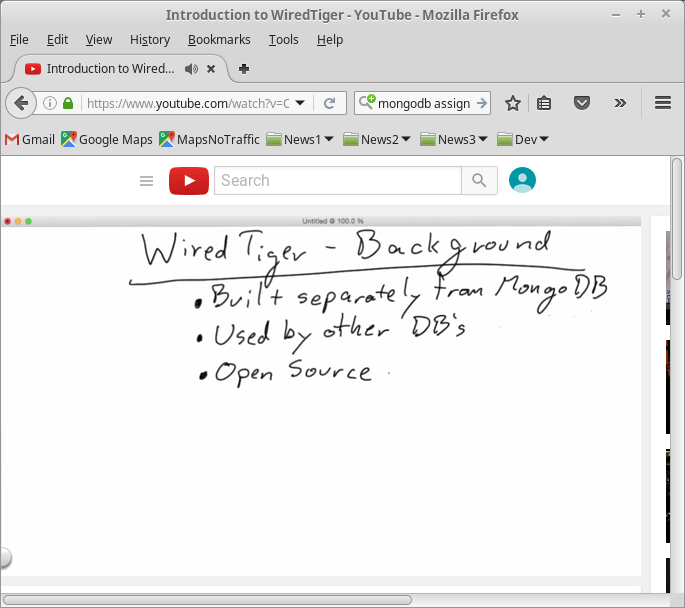 Introduction to WiredTiger - YouTube - Mozilla Firefox
File Edit View History Bookmarks Tools Help
Introduction to Wired...
https://www.youtube.com/watch?v=C mongodb assign
Gmail Google Maps MapsNoTraffic News1 News2 News3 Dev
Search
Untitled @ 100.0 %
WiredTiger - Background
• Built separately from MongoDB
• Used by other DB's
• Open Source